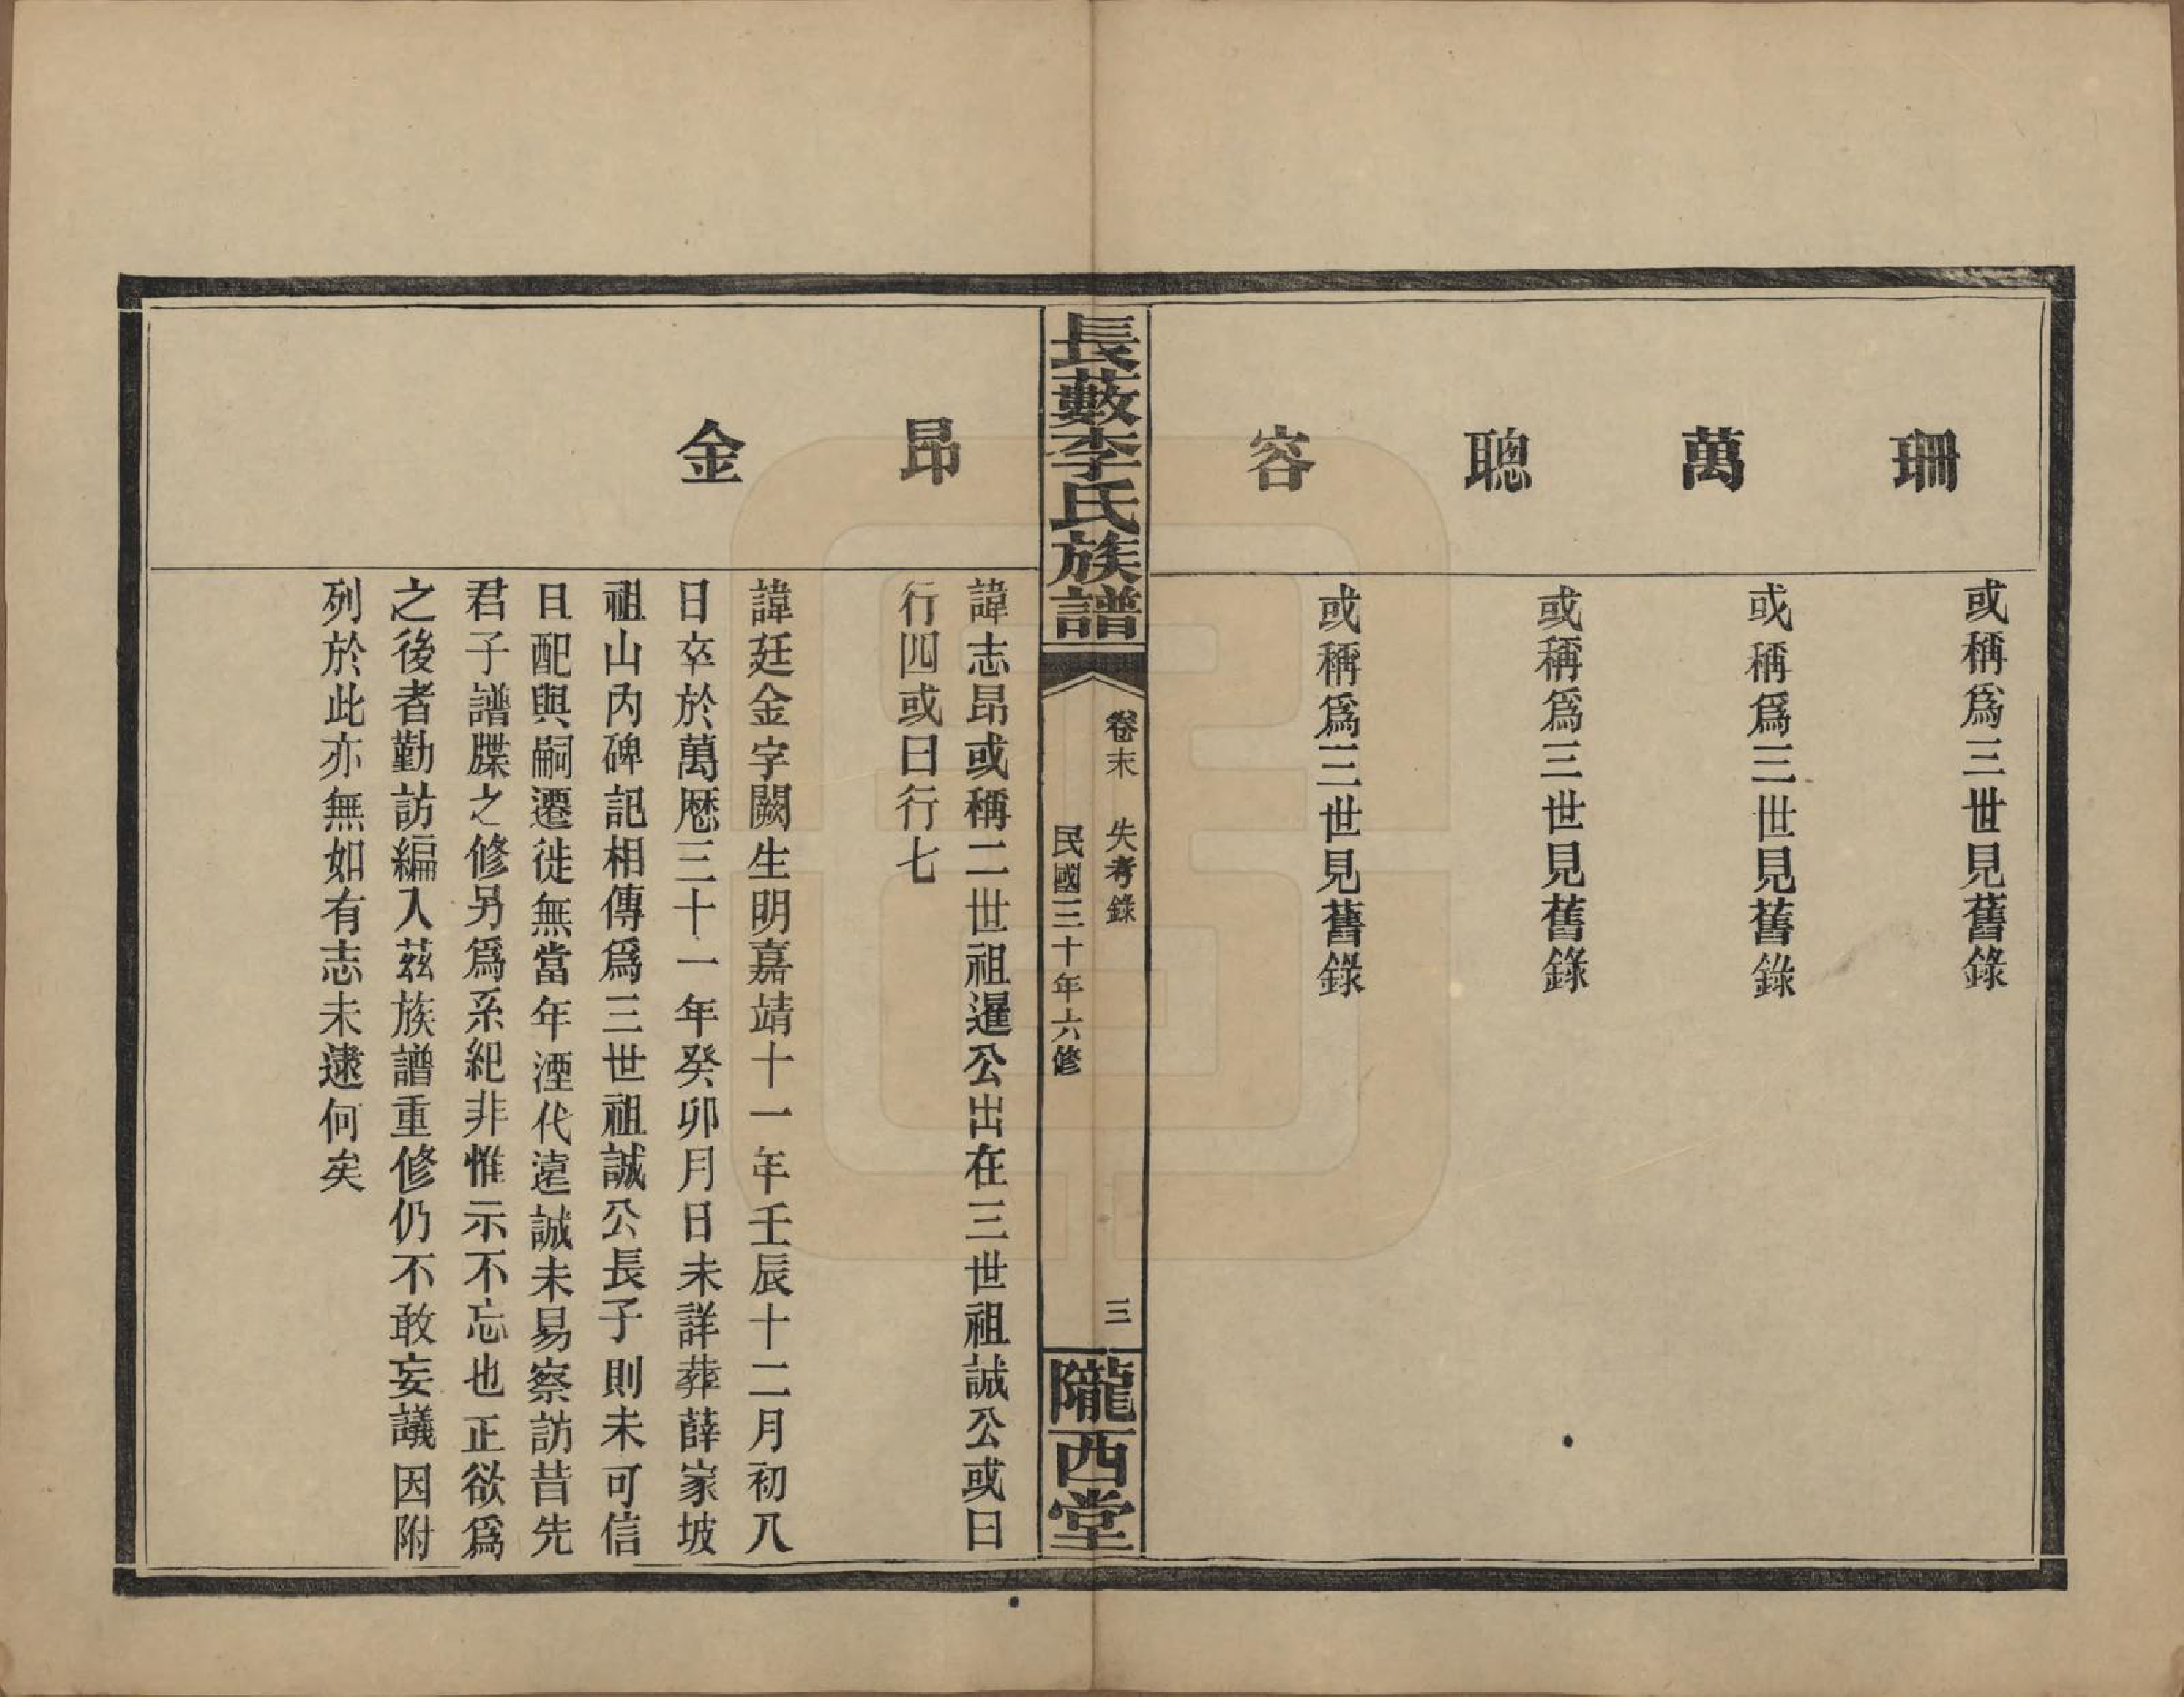 珊
或稱爲三世見舊錄
萬
或稱爲三世見舊錄
聰
或稱爲三世見舊錄
容
或稱爲三世見舊錄
長藪李氏族譜
卷末 失考錄
三
民國三十年六修
隴西堂
昂
諱志昂或稱二世祖暹公出在三世祖誠公或曰
行四或曰行七
金
諱廷金字闕生明嘉靖十一年壬辰十二月初八
日卒於萬厯三十一年癸卯月日未詳葬薛家坡
祖山內碑記相傳爲三世祖誠公長子則未可信
且配與嗣遷徙無當年湮代遠誠未易察訪昔先
君子譜牒之修另爲系紀非惟示不忘也正欲爲
之後者勤訪編入茲族譜重修仍不敢妄議因附
列於此亦無如有志未逮何矣